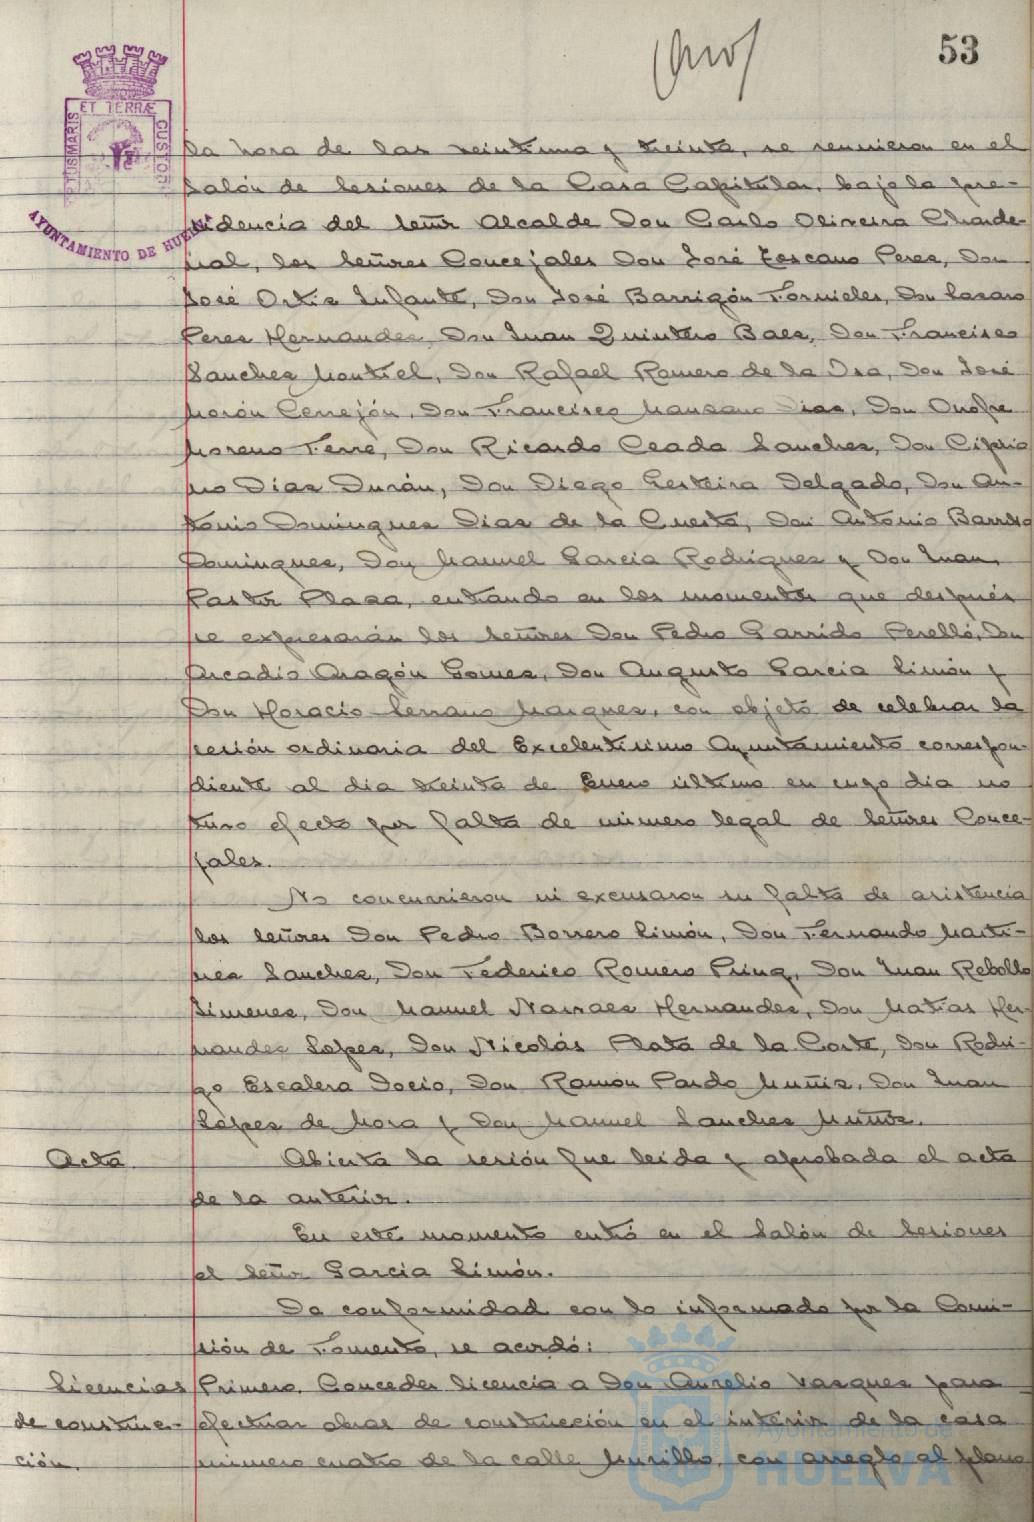 53
ET TERRÆ
PORTUS MARIS
CUSTODIA
AYUNTAMIENTO DE HUELVA
la hora de las veintiuna y treinta, se reunieron en el
Salón de Sesiones de la Casa Capitular, bajo la pre-
sidencia del Señor Alcalde Don Carlo Oliveira Charde-
nal, los Señores Concejales Don José Toscano Perez, Don
José Ortiz Infante, Don José Barrigón Fornieles, Don Lazaro
Perez Hernandez, Don Juan Quintero Baez, Don Francisco
Sanchez Montiel, Don Rafael Romero de la Osa, Don José
Morón Cerrejón, Don Francisco Manzano Diaz, Don Onofre
Moreno Ferre, Don Ricardo Ceada Sanchez, Don Cipria
no Diaz Durán, Don Diego Lesteira Delgado, Don An-
tonio Dominguez Diaz de la Cuesta, Don Antonio Barroso
Dominguez, Don Manuel Garcia Rodriguez y Don Juan
Pastor Plaza, entrando en los momentos que después
se expresarán los Señores Don Pedro Garrido Perelló, Don
Arcadio Aragón Gomez, Don Augusto Garcia Simón y
Don Horacio Serrano Marquez, con objeto de celebrar la
sesión ordinaria del Excelentísimo Ayuntamiento correspon-
diente al dia treinta de Enero último en cuyo dia no
tuvo efecto por falta de número legal de Señores Conce-
jales.
No concurrieron ni excusaron su falta de asistencia
los Señores Don Pedro Borrero Limón, Don Fernando Marti-
nez Sanchez, Don Federico Romero Prinz, Don Juan Rebollo
Jimenez, Don Manuel Narvaez Hernandez, Don Matias Her-
nandez Lopez, Don Nicolás Plata de la Corte, Don Rodri-
go Escalera Docio, Don Ramón Pardo Muñiz, Don Juan
López de Mora y Don Manuel Sanchez Muñoz.
Acta.
Abierta la sesión fue leida y aprobada el acta
de la anterior.
En este momento entró en el Salón de Sesiones
el Señor Garcia Simón.
De conformidad con lo informado por la Comi-
sión de Fomento, se acordó:
Licencias
de construc-
ción.
Primero. Conceder licencia a Don Aurelio Vazquez para
efectuar obras de construcción en el interior de la casa
número cuatro de la calle Murillo, con arreglo al plano
Ayuntamiento de
HUELVA